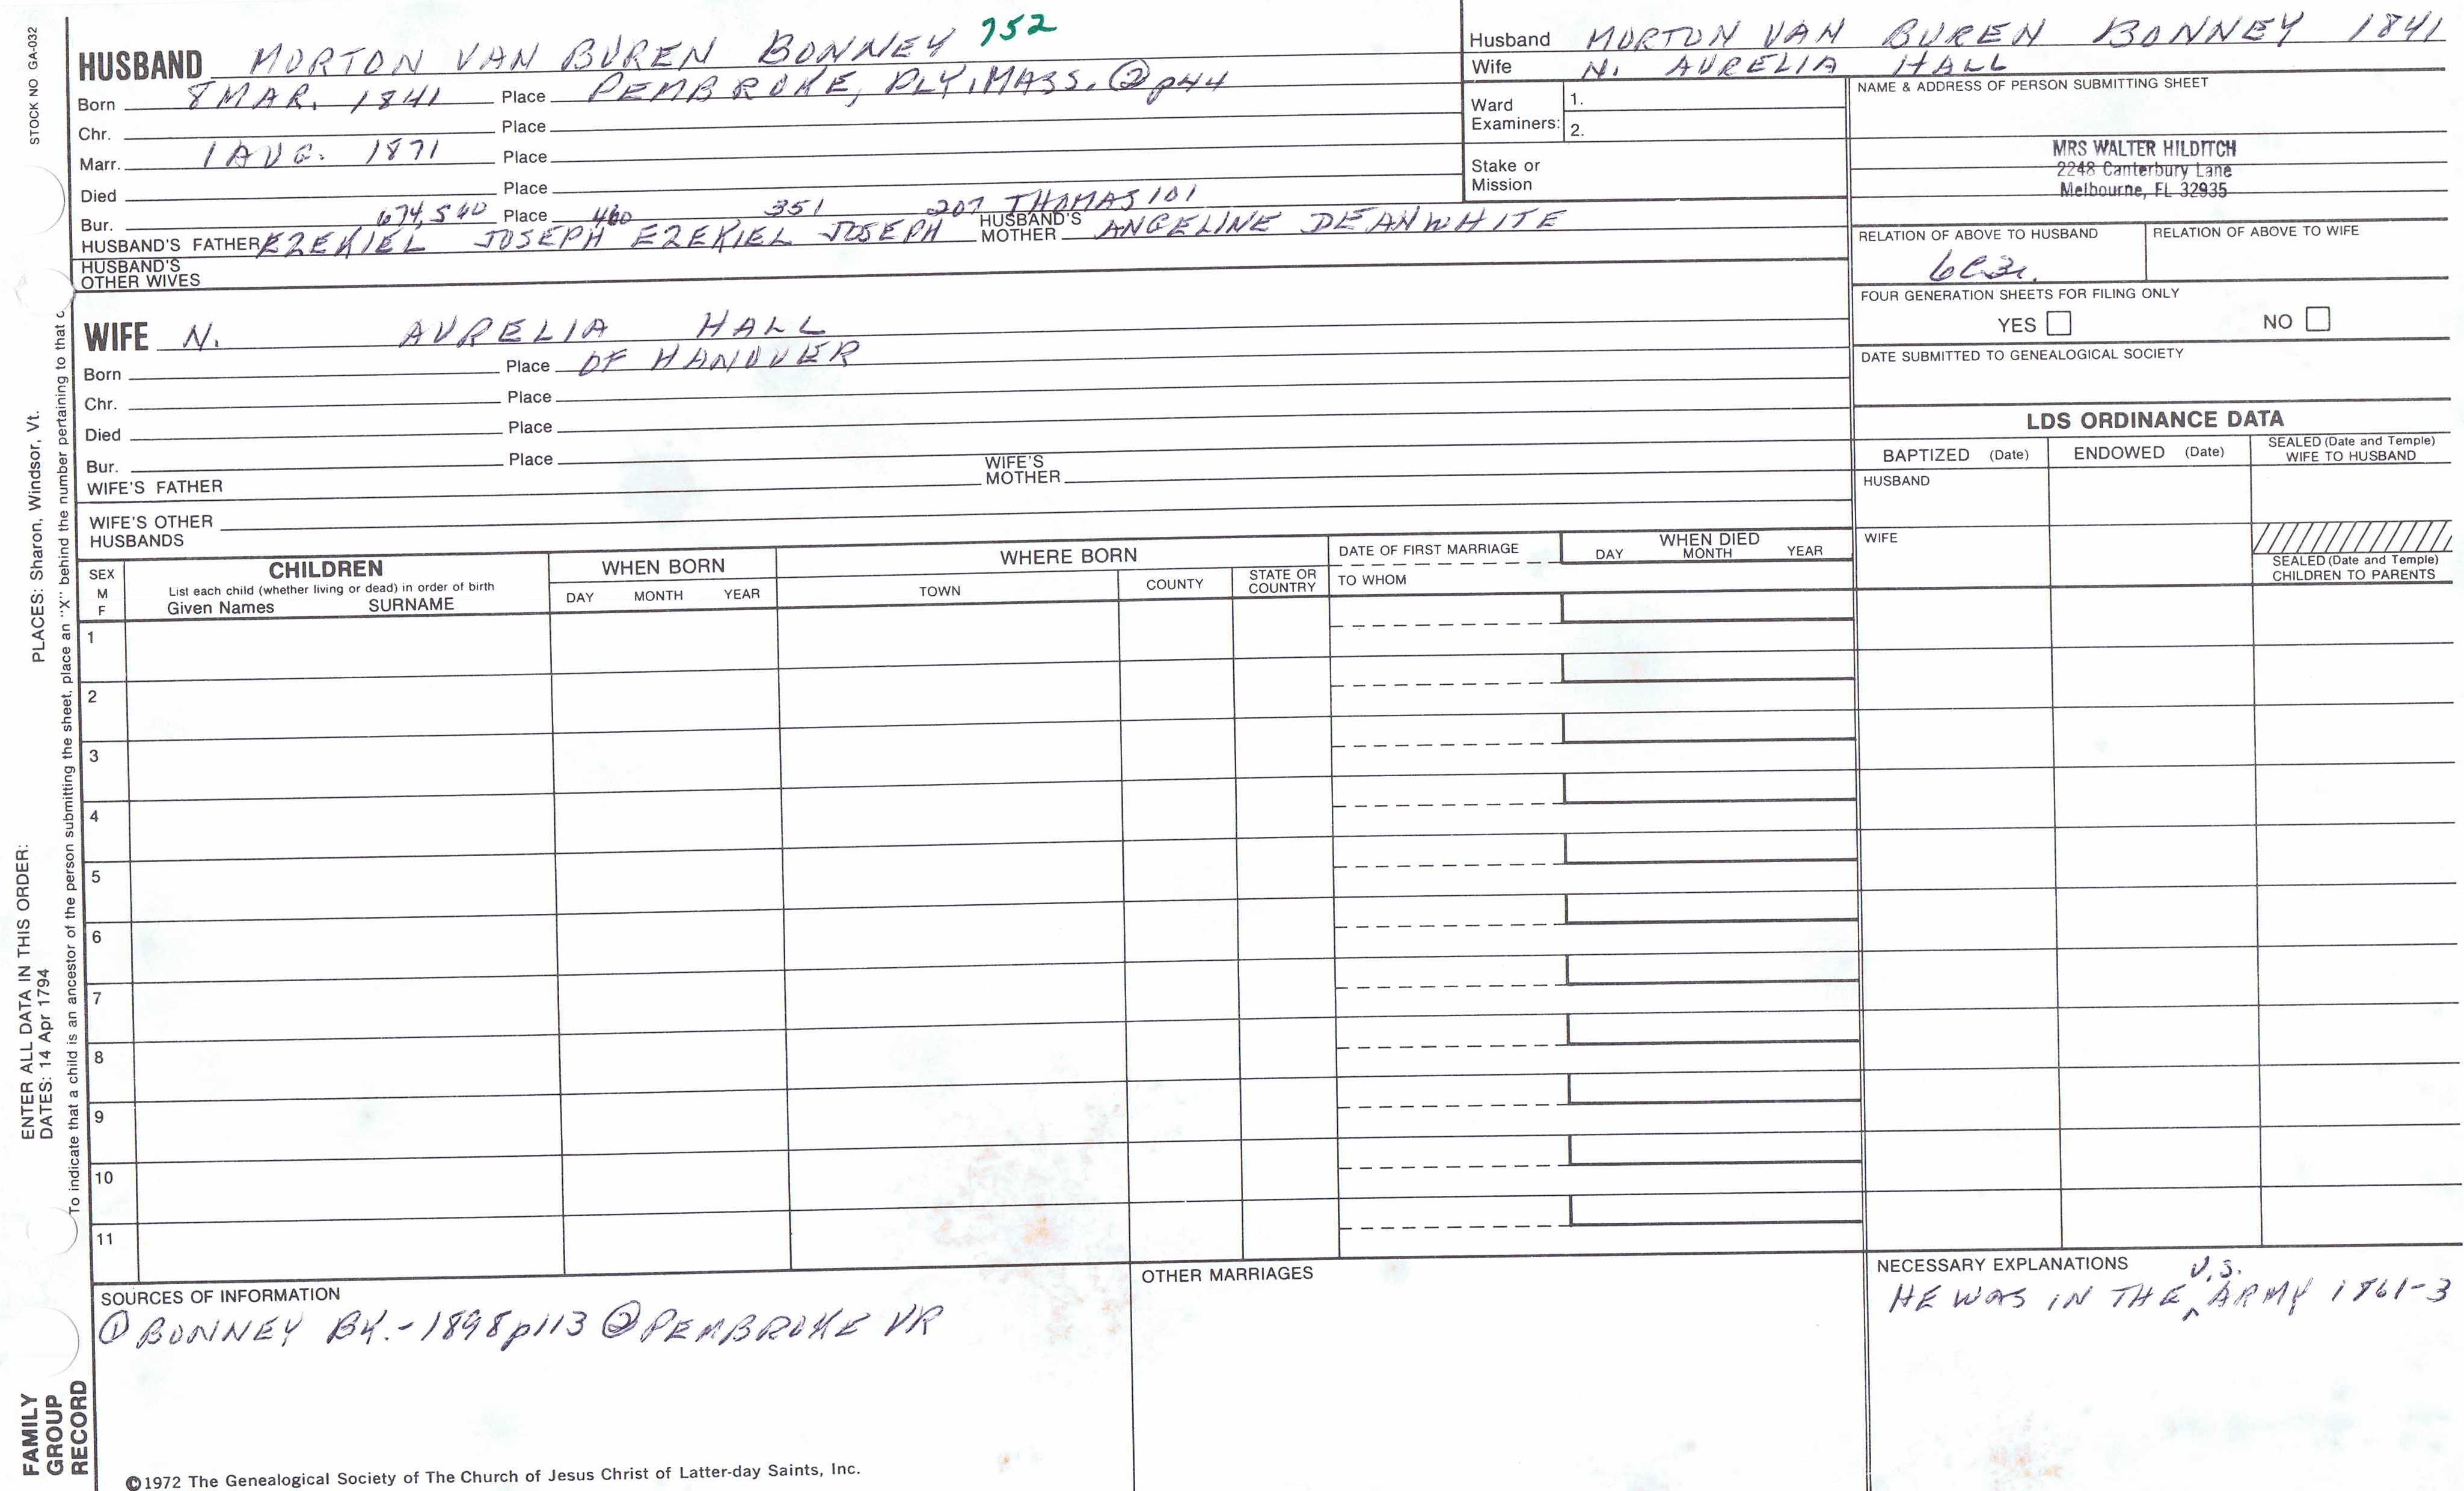 STOCK NO GA-032
PLACES: Sharon, Windsor, Vt.
ENTER ALL DATA IN THIS ORDER:
DATES: 14 Apr 1794
To indicate that a child is an ancestor of the person submitting the sheet, place an "X" behind the number pertaining to that c
FAMILY GROUP RECORD
HUSBAND MORTON VAN BUREN BONNEY 752
Born 8 MAR. 1841 Place PEMBROKE, PLY, MASS. ② p44
Chr. Place
Marr. 1 AUG. 1871 Place
Died Place
Bur. Place
674,540 460 351 207 THOMAS 101
HUSBAND'S FATHER EZEKIEL JOSEPH EZEKIEL JOSEPH HUSBAND'S MOTHER ANGELINE DEAN WHITE
HUSBAND'S OTHER WIVES
WIFE N. AURELIA HALL
Born Place OF HANOVER
Chr. Place
Died Place
Bur. Place
WIFE'S FATHER WIFE'S MOTHER
WIFE'S OTHER HUSBANDS
Husband MORTON VAN BUREN BONNEY 1841
Wife N. AURELIA HALL
Ward Examiners: 1.
2.
Stake or Mission
NAME & ADDRESS OF PERSON SUBMITTING SHEET
MRS WALTER HILDITCH
2248 Canterbury Lane
Melbourne, FL 32935
RELATION OF ABOVE TO HUSBAND RELATION OF ABOVE TO WIFE
FOUR GENERATION SHEETS FOR FILING ONLY
YES NO
DATE SUBMITTED TO GENEALOGICAL SOCIETY
LDS ORDINANCE DATA
BAPTIZED (Date) ENDOWED (Date) SEALED (Date and Temple) WIFE TO HUSBAND
HUSBAND
WIFE
SEALED (Date and Temple) CHILDREN TO PARENTS
SEX M F
CHILDREN
List each child (whether living or dead) in order of birth
Given Names SURNAME
WHEN BORN
DAY MONTH YEAR
WHERE BORN
TOWN COUNTY STATE OR COUNTRY
DATE OF FIRST MARRIAGE
TO WHOM
WHEN DIED
DAY MONTH YEAR
1
2
3
4
5
6
7
8
9
10
11
SOURCES OF INFORMATION
① BONNEY BK.-1898 p113 ② PEMBROKE VR
OTHER MARRIAGES
NECESSARY EXPLANATIONS
HE WAS IN THE U.S. ARMY 1861-3
©1972 The Genealogical Society of The Church of Jesus Christ of Latter-day Saints, Inc.